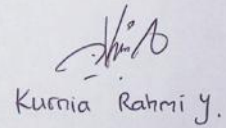 Kurnia Rahmi Y.